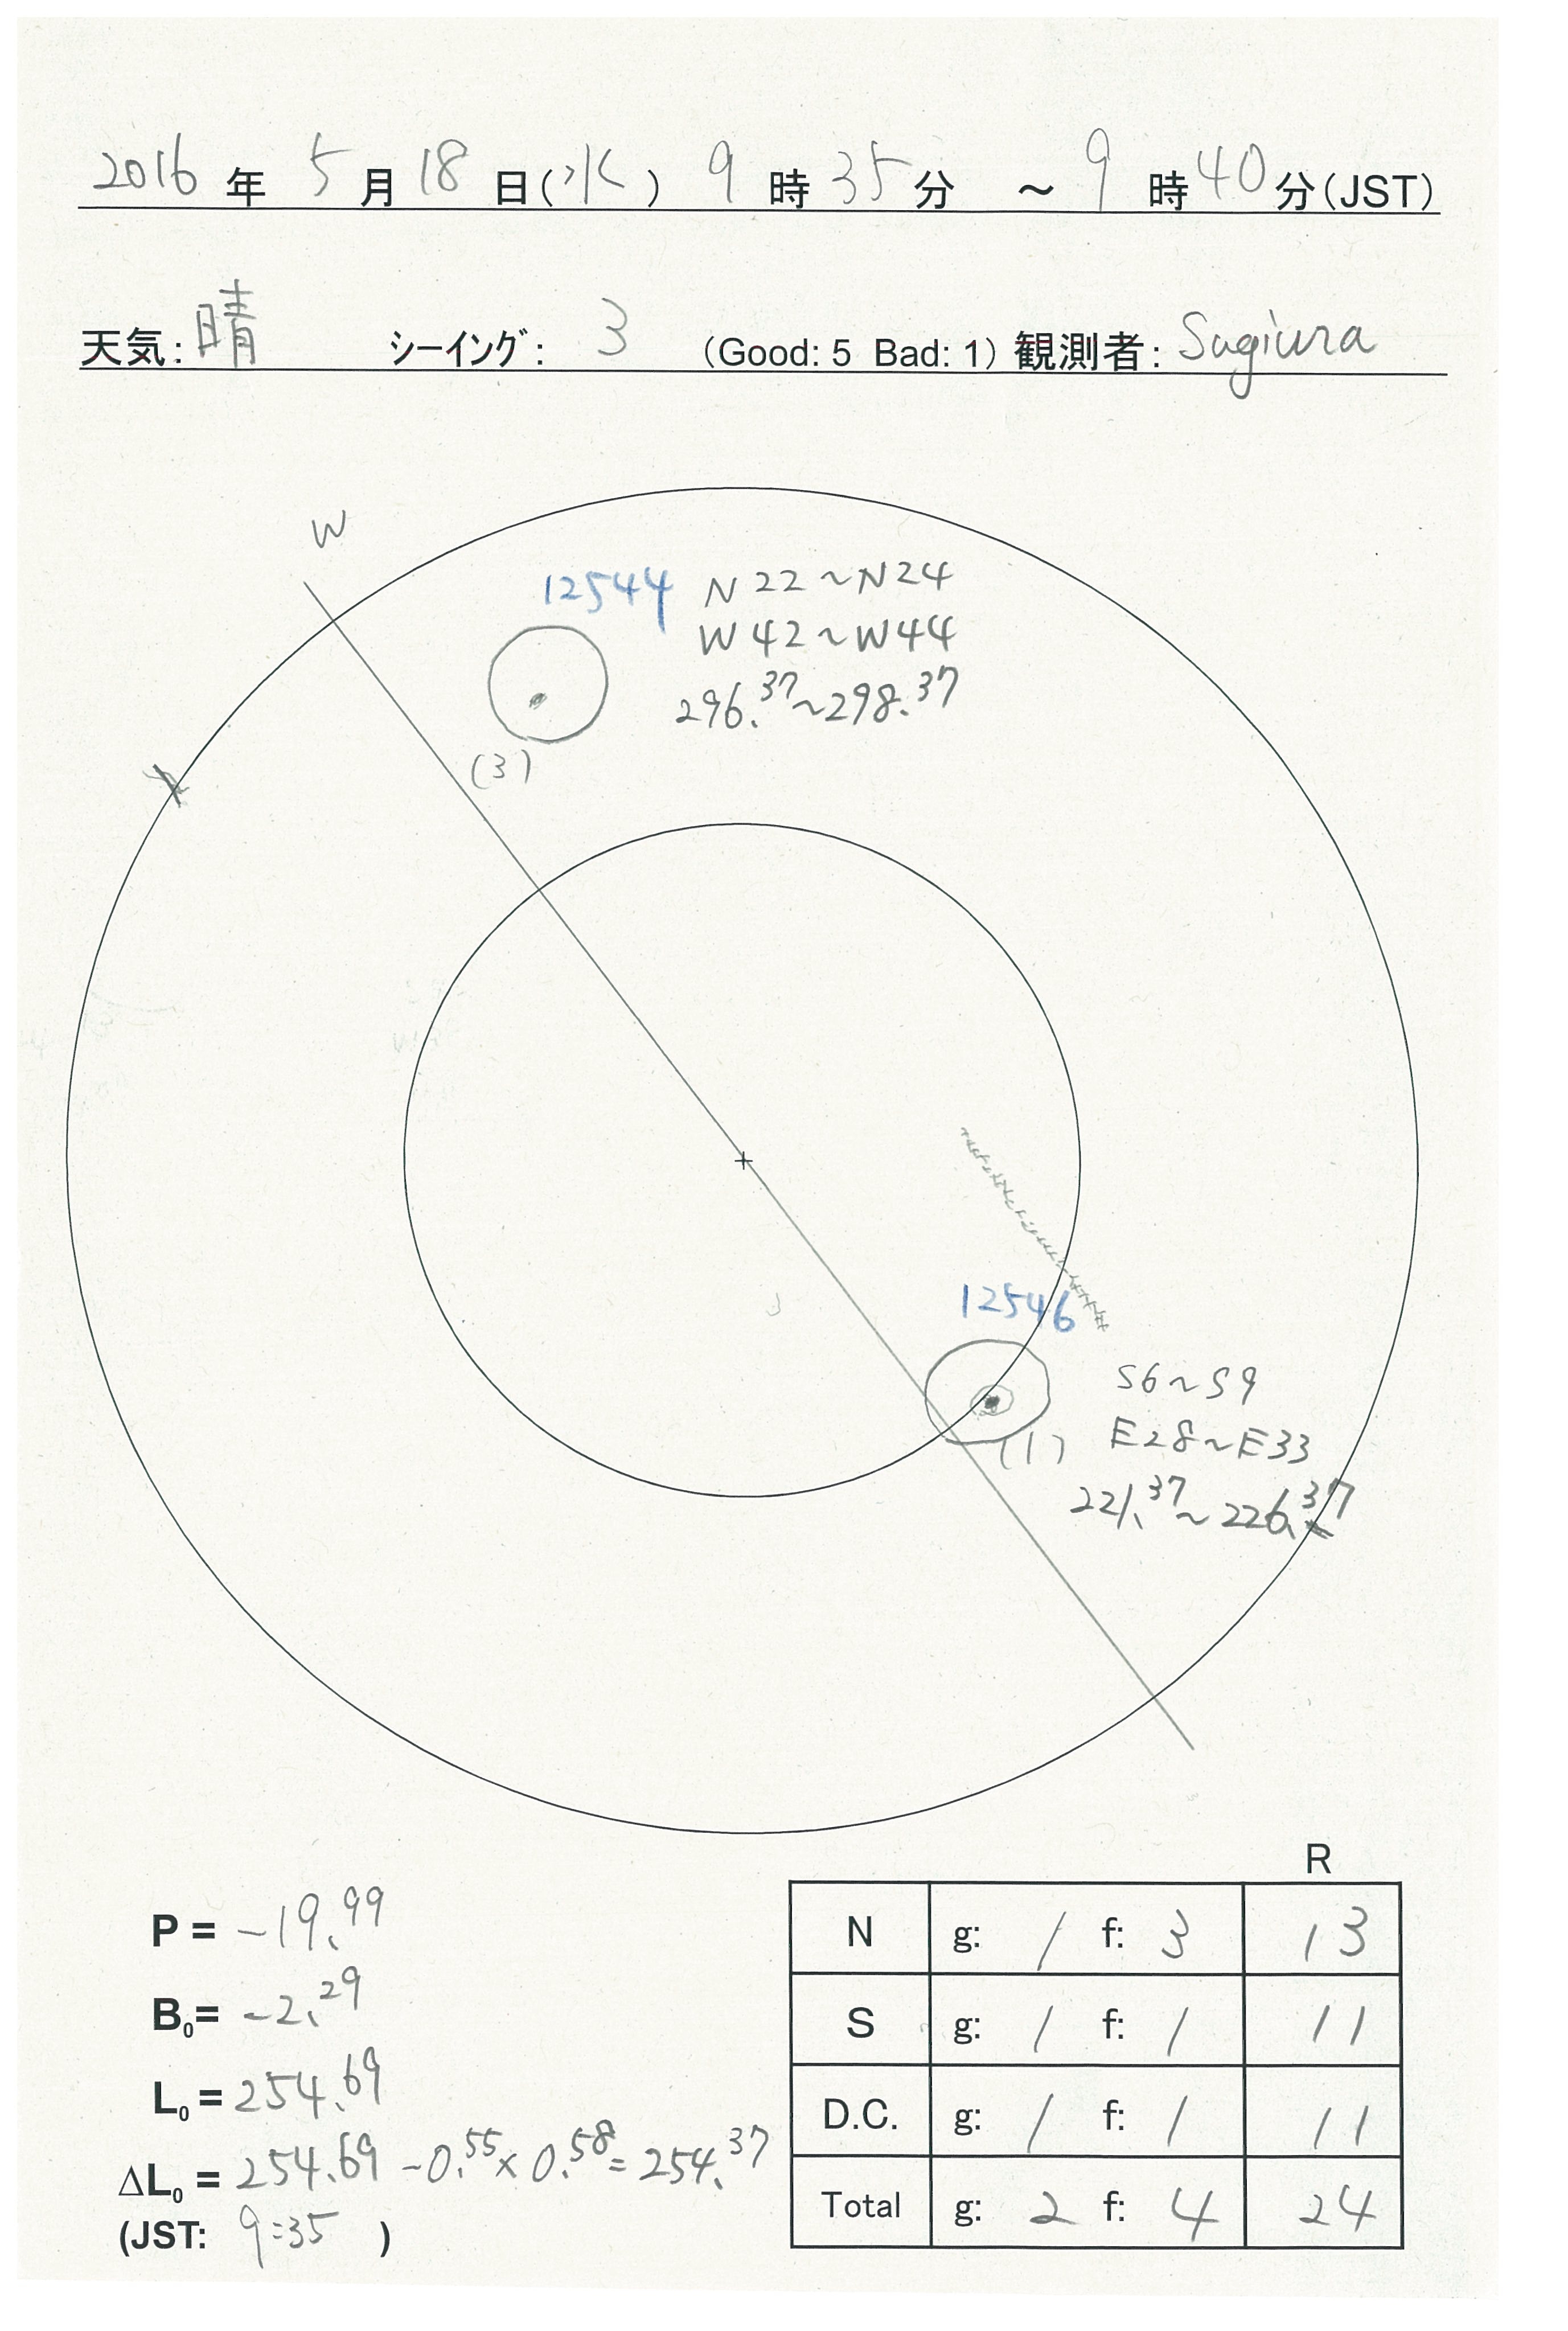 2016 年 5 月 18 日(水) 9 時 35 分 ～ 9 時 40 分(JST)
天気: 晴 シーイング: 3 (Good: 5 Bad: 1) 観測者: Sugiura
W
12544 N22～N24
W42～W44
296.37～298.37
(3)
12546
S6～S9
(1) E28～E33
221.37～226.37
R
P = -19.99
B0= -2.29
L0 = 254.69
ΔL0 = 254.69 -0.55×0.58= 254.37
(JST: 9:35 )
N g: 1 f: 3 13
S g: 1 f: 1 11
D.C. g: 1 f: 1 11
Total g: 2 f: 4 24